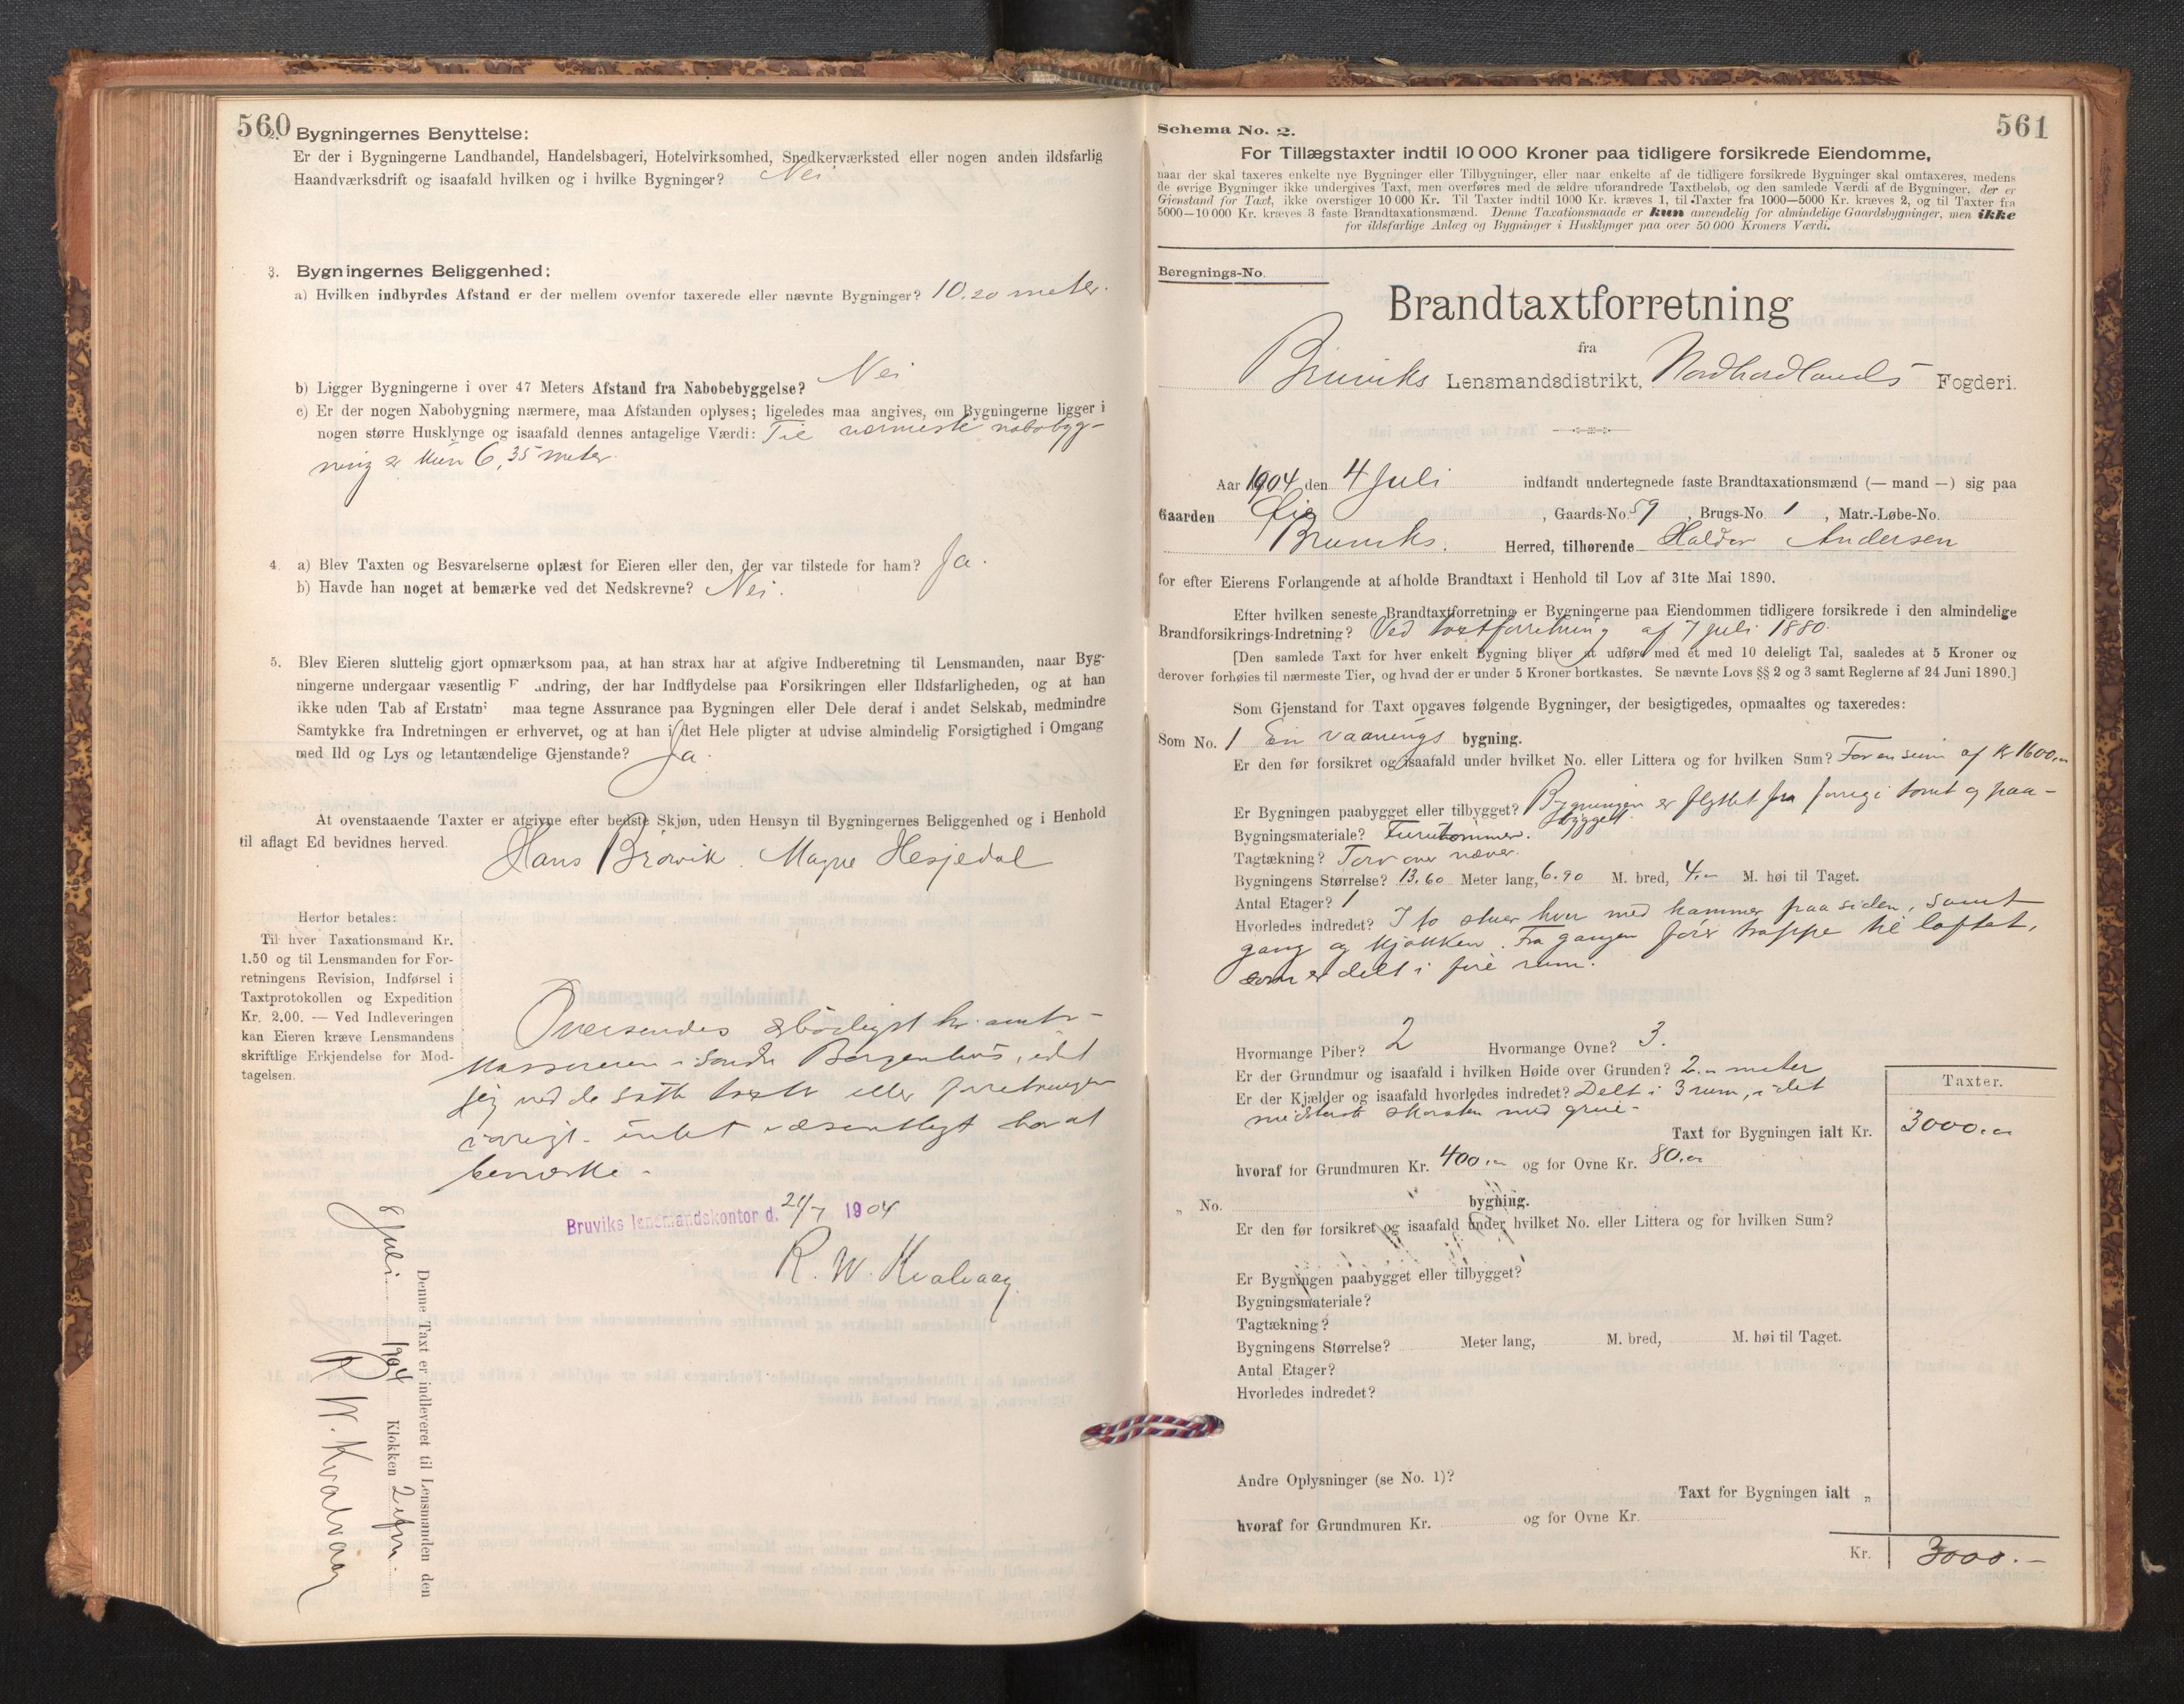 560
2. Bygningernes Benyttelse:
Er der i Bygningerne Landhandel, Handelsbageri, Hotelvirksomhed, Snedkerværksted eller nogen anden ildsfarlig
Haandværksdrift og isaafald hvilken og i hvilke Bygninger? Nei
3. Bygningernes Beliggenhed:
a) Hvilken indbyrdes Afstand er der mellem ovenfor taxerede eller nævnte Bygninger? 10.20 meter.
b) Ligger Bygningerne i over 47 Meters Afstand fra Nabobebyggelse? Nei
c) Er der nogen Nabobygning nærmere, maa Afstanden oplyses; ligeledes maa angives, om Bygningerne ligger i
nogen større Husklynge og isaafald dennes antagelige Værdi: Til nærmeste nabobyg-
ning er kun 6,35 meter.
4. a) Blev Taxten og Besvarelserne oplæst for Eieren eller den, der var tilstede for ham? Ja.
b) Havde han noget at bemærke ved det Nedskrevne? Nei.
5. Blev Eieren sluttelig gjort opmærksom paa, at han strax har at afgive Indberetning til Lensmanden, naar Byg-
ningerne undergaar væsentlig F andring, der har Indflydelse paa Forsikringen eller Ildsfarligheden, og at han
ikke uden Tab af Erstatn maa tegne Assurance paa Bygningen eller Dele deraf i andet Selskab, medmindre
Samtykke fra Indretningen er erhvervet, og at han i det Hele pligter at udvise almindelig Forsigtighed i Omgang
med Ild og Lys og letantændelige Gjenstande? Ja.
At ovenstaaende Taxter er afgivne efter bedste Skjøn, uden Hensyn til Bygningernes Beliggenhed og i Henhold
til aflagt Ed bevidnes herved.
Hans Brøvik. Magne Hesjedal
Herfor betales:
Til hver Taxationsmand Kr.
1.50 og til Lensmanden for For-
retningens Revision, Indførsel i
Taxtprotokollen og Expedition
Kr. 2.00. — Ved Indleveringen
kan Eieren kræve Lensmandens
skriftlige Erkjendelse for Mod-
tagelsen.
Oversendes ærbødigst hr. amts-
kassereren i Søndre Bergenhus, idet
jeg ved de satte taxter eller forretningen
øvrigt intet væsentligt har at
bemærke -
Bruviks lensmandskontor d. 21/7 1904
R. W. Kvalvaag
Denne Taxt er indleveret til Lensmanden den
8 Juli 1904 Klokken 2 efm.
R. W. Kvalvaag
561
Schema No. 2.
For Tillægstaxter indtil 10 000 Kroner paa tidligere forsikrede Eiendomme,
naar der skal taxeres enkelte nye Bygninger eller Tilbygninger, eller naar enkelte af de tidligere forsikrede Bygninger skal omtaxeres, medens
de øvrige Bygninger ikke undergives Taxt, men overføres med de ældre uforandrede Taxtbeløb, og den samlede Værdi af de Bygninger, der er
Gjenstand for Taxt, ikke overstiger 10 000 Kr. Til Taxter indtil 1000 Kr. kræves 1, til Taxter fra 1000—5000 Kr. kræves 2, og til Taxter fra
5000—10 000 Kr. kræves 3 faste Brandtaxationsmænd. Denne Taxationsmaade er kun anvendelig for almindelige Gaardsbygninger, men ikke
for ildsfarlige Anlæg og Bygninger i Husklynger paa over 50 000 Kroners Værdi.
Beregnings-No.
Brandtaxtforretning
fra
Bruviks Lensmandsdistrikt, Nordhordlands Fogderi.
Aar 1904 den 4 Juli indfandt undertegnede faste Brandtaxationsmænd (— mand —) sig paa
Gaarden , Gaards-No. 59, Brugs-No. 1, Matr.-Løbe-No.
Bruviks. Herred, tilhørende Haldor Andersen
for efter Eierens Forlangende at afholde Brandtaxt i Henhold til Lov af 31te Mai 1890.
Efter hvilken seneste Brandtaxtforretning er Bygningerne paa Eiendommen tidligere forsikrede i den almindelige
Brandforsikrings-Indretning? Ved taxtforretning af 7 juli 1880.
[Den samlede Taxt for hver enkelt Bygning bliver at udføre med et med 10 deleligt Tal, saaledes at 5 Kroner og
derover forhøies til nærmeste Tier, og hvad der er under 5 Kroner bortkastes. Se nævnte Lovs §§ 2 og 3 samt Reglerne af 24 Juni 1890.]
Som Gjenstand for Taxt opgaves følgende Bygninger, der besigtigedes, opmaaltes og taxeredes:
Som No. 1 En vaanings bygning.
Er den før forsikret og isaafald under hvilket No. eller Littera og for hvilken Sum? For en sum af Kr 1600,00
Er Bygningen paabygget eller tilbygget? Bygningen er flyttet fra forrige tomt og paa-
bygget
Bygningsmateriale? Furutømmer.
Tagtækning? Torv over næver.
Bygningens Størrelse? 13.60 Meter lang, 6.90 M. bred, 4.00 M. høi til Taget.
Antal Etager? 1
Hvorledes indredet? I to stuer hver med kammer paa siden, samt
gang og kjøkken. Fra gangen fører trappe til loftet,
som er delt i fire rum.
Hvormange Piber? 2 Hvormange Ovne? 3.
Er der Grundmur og isaafald i hvilken Høide over Grunden? 2.00 meter
Er der Kjælder og isaafald hvorledes indredet? Delt i 3 rum, i det
midterste skorsten med grue-
Taxter.
Taxt for Bygningen ialt Kr. 3000.00
hvoraf for Grundmuren Kr. 400.00 og for Ovne Kr. 80.00
„ No. bygning.
Er den før forsikret og isaafald under hvilket No. eller Littera og for hvilken Sum?
Er Bygningen paabygget eller tilbygget?
Bygningsmateriale?
Tagtækning?
Bygningens Størrelse? Meter lang, M. bred, M. høi til Taget.
Antal Etager?
Hvorledes indredet?
Andre Oplysninger (se No. 1)?
Taxt for Bygningen ialt „
hvoraf for Grundmuren Kr. og for Ovne Kr.
Kr. 3000.-